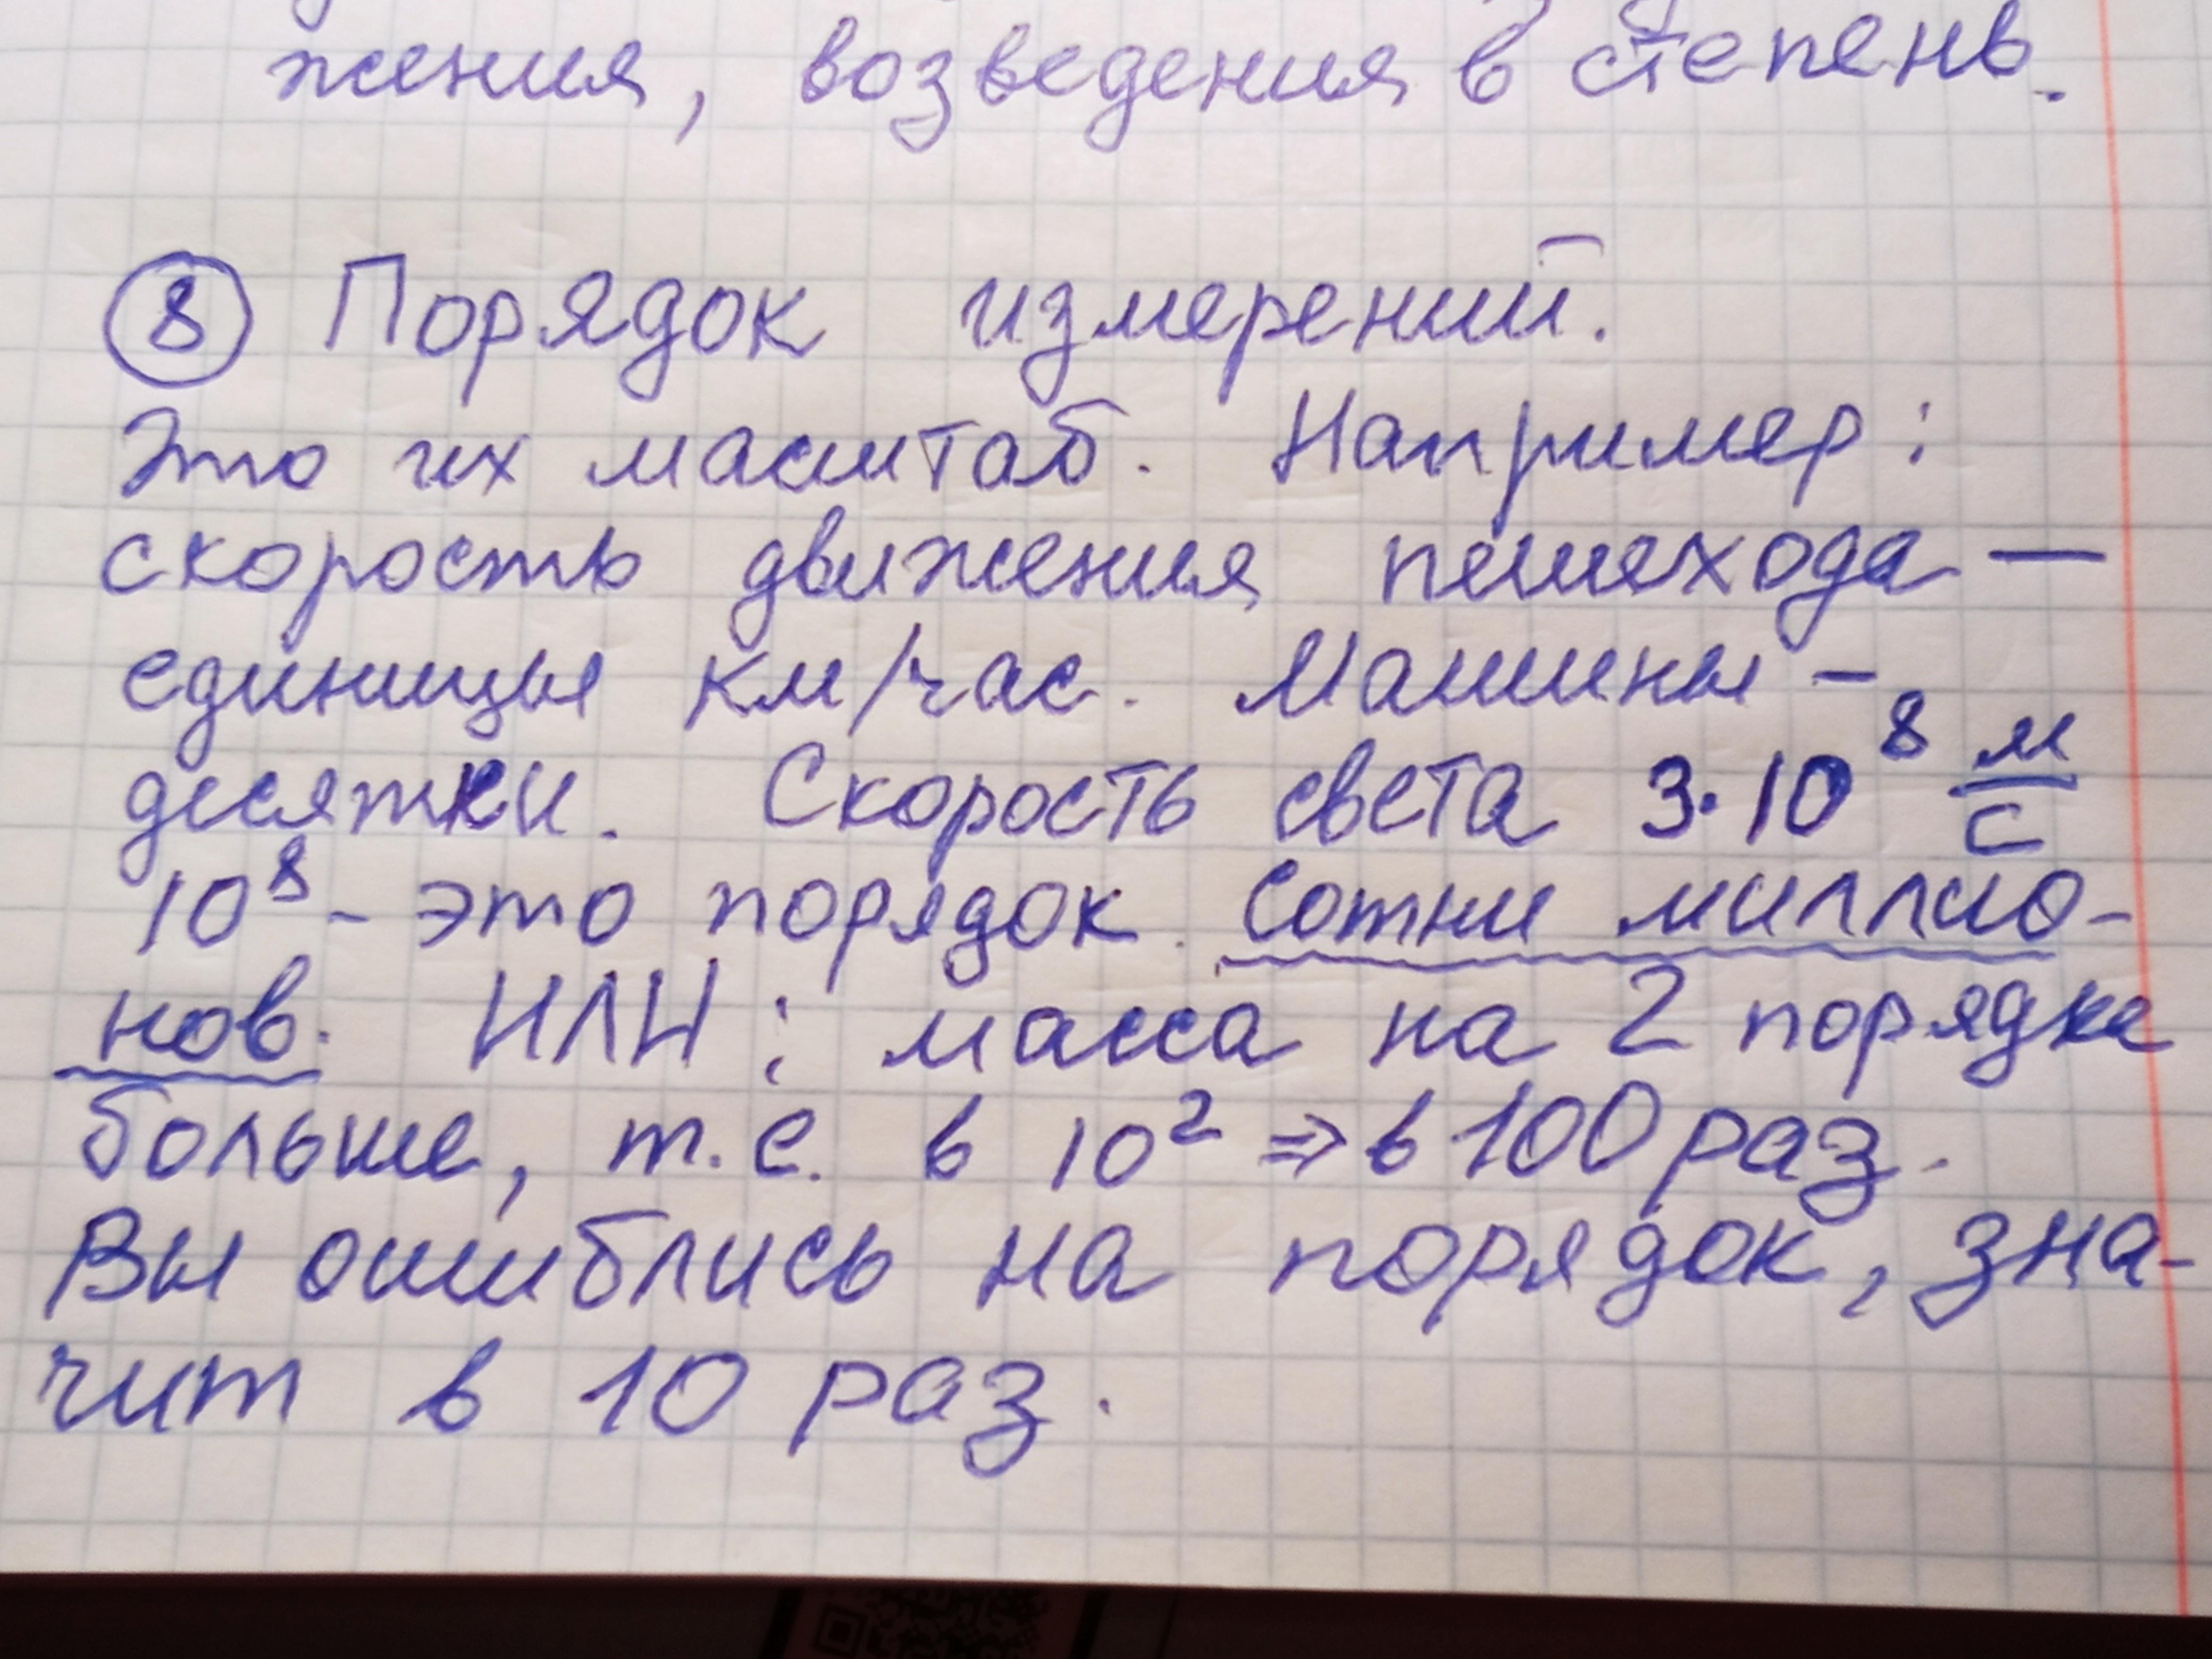 жения, возведения в степень.
⑧ Порядок измерений.
Это их масштаб. Например:
скорость движения пешехода —
единицы км/час. Машины –
десятки. Скорость света 3·10⁸ м/с
10⁸ - это порядок сотни миллио-
нов. ИЛИ: масса на 2 порядка
больше, т.е. в 10² ⇒ в 100 раз.
Вы ошиблись на порядок, зна-
чит в 10 раз.